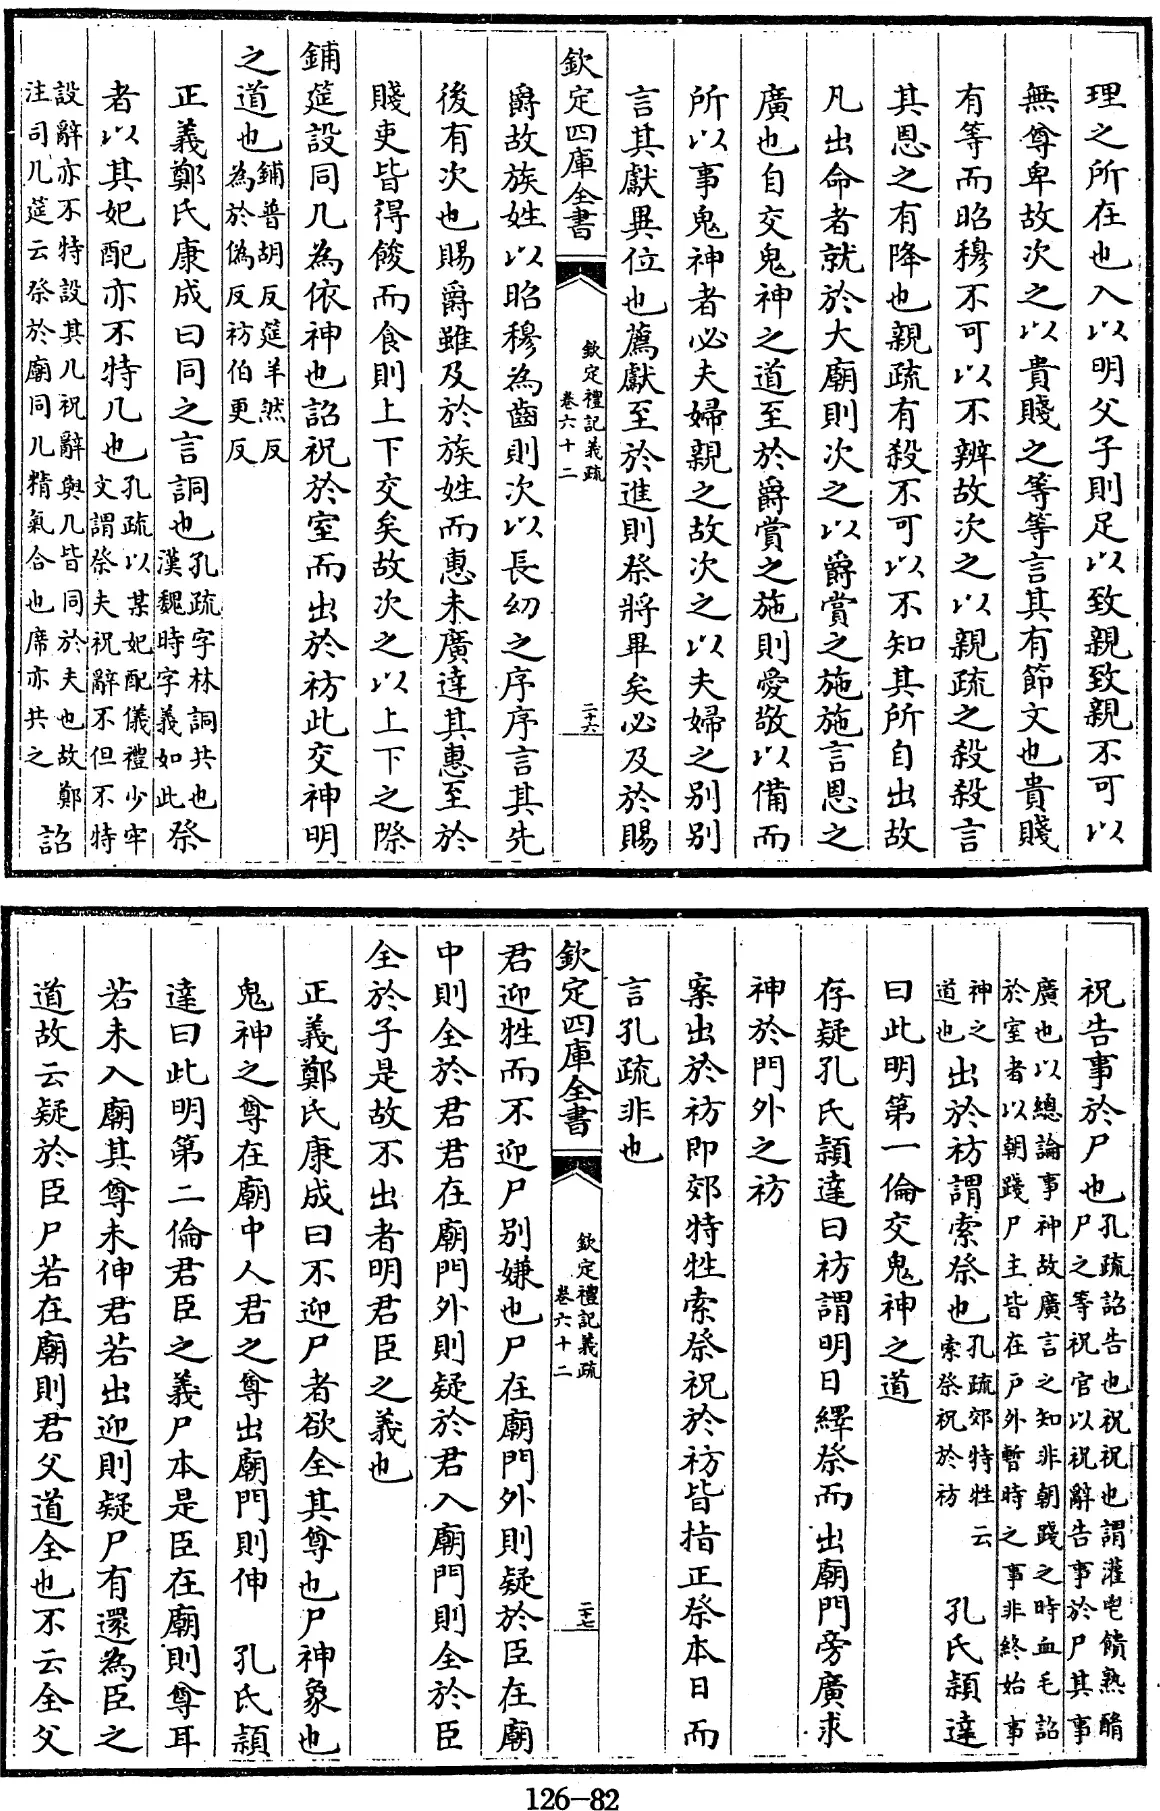 理之所在也入以明父子則足以致親致親不可以
無尊卑故次之以貴賤之等等言其有節文也貴賤
有等而昭穆不可以不辨故次之以親疏之殺殺言
其恩之有降也親疏有殺不可以不知其所自出故
凡出命者就於大廟則次之以爵賞之施施言恩之
廣也自交鬼神之道至於爵賞之施則愛敬以備而
所以事鬼神者必夫婦親之故次之以夫婦之别别
言其獻異位也薦獻至於進則祭將畢矣必及於賜
欽定四庫全書
欽定禮記義疏
卷六十二
二十六
爵故族姓以昭穆為齒則次以長幼之序序言其先
後有次也賜爵雖及於族姓而惠未廣達其惠至於
賤吏皆得餕而食則上下交矣故次之以上下之際
鋪筵設同几為依神也詔祝於室而出於祊此交神明
之道也
鋪普胡反筵羊然反
為於偽反祊伯更反
正義鄭氏康成曰同之言詷也
孔疏字林詷共也
漢魏時字義如此
祭
者以其妃配亦不特几也
孔疏以某妃配儀禮少牢
文謂祭夫祝辭不但不特
設辭亦不特設其几祝辭與几皆同於夫也故鄭
注司几筵云祭於廟同几精氣合也席亦共之
詔
祝告事於尸也
孔疏詔告也祝祝也謂灌鬯饋熟酳
尸之等祝官以祝辭告事於尸其事
廣也以總論事神故廣言之知非朝踐之時血毛詔
於室者以朝踐尸主皆在戶外暫時之事非終始事
神之
道也
出於祊謂索祭也
孔疏郊特牲云
索祭祝於祊
孔氏頴達
曰此明第一倫交鬼神之道
存疑孔氏頴達曰祊謂明日繹祭而出廟門旁廣求
神於門外之祊
案出於祊即郊特牲索祭祝於祊皆指正祭本日而
言孔疏非也
欽定四庫全書
欽定禮記義疏
卷六十二
二十七
君迎牲而不迎尸别嫌也尸在廟門外則疑於臣在廟
中則全於君君在廟門外則疑於君入廟門則全於臣
全於子是故不出者明君臣之義也
正義鄭氏康成曰不迎尸者欲全其尊也尸神象也
鬼神之尊在廟中人君之尊出廟門則伸　孔氏頴
達曰此明第二倫君臣之義尸本是臣在廟則尊耳
若未入廟其尊未伸君若出迎則疑尸有還為臣之
道故云疑於臣尸若在廟則君父道全也不云全父
126-82